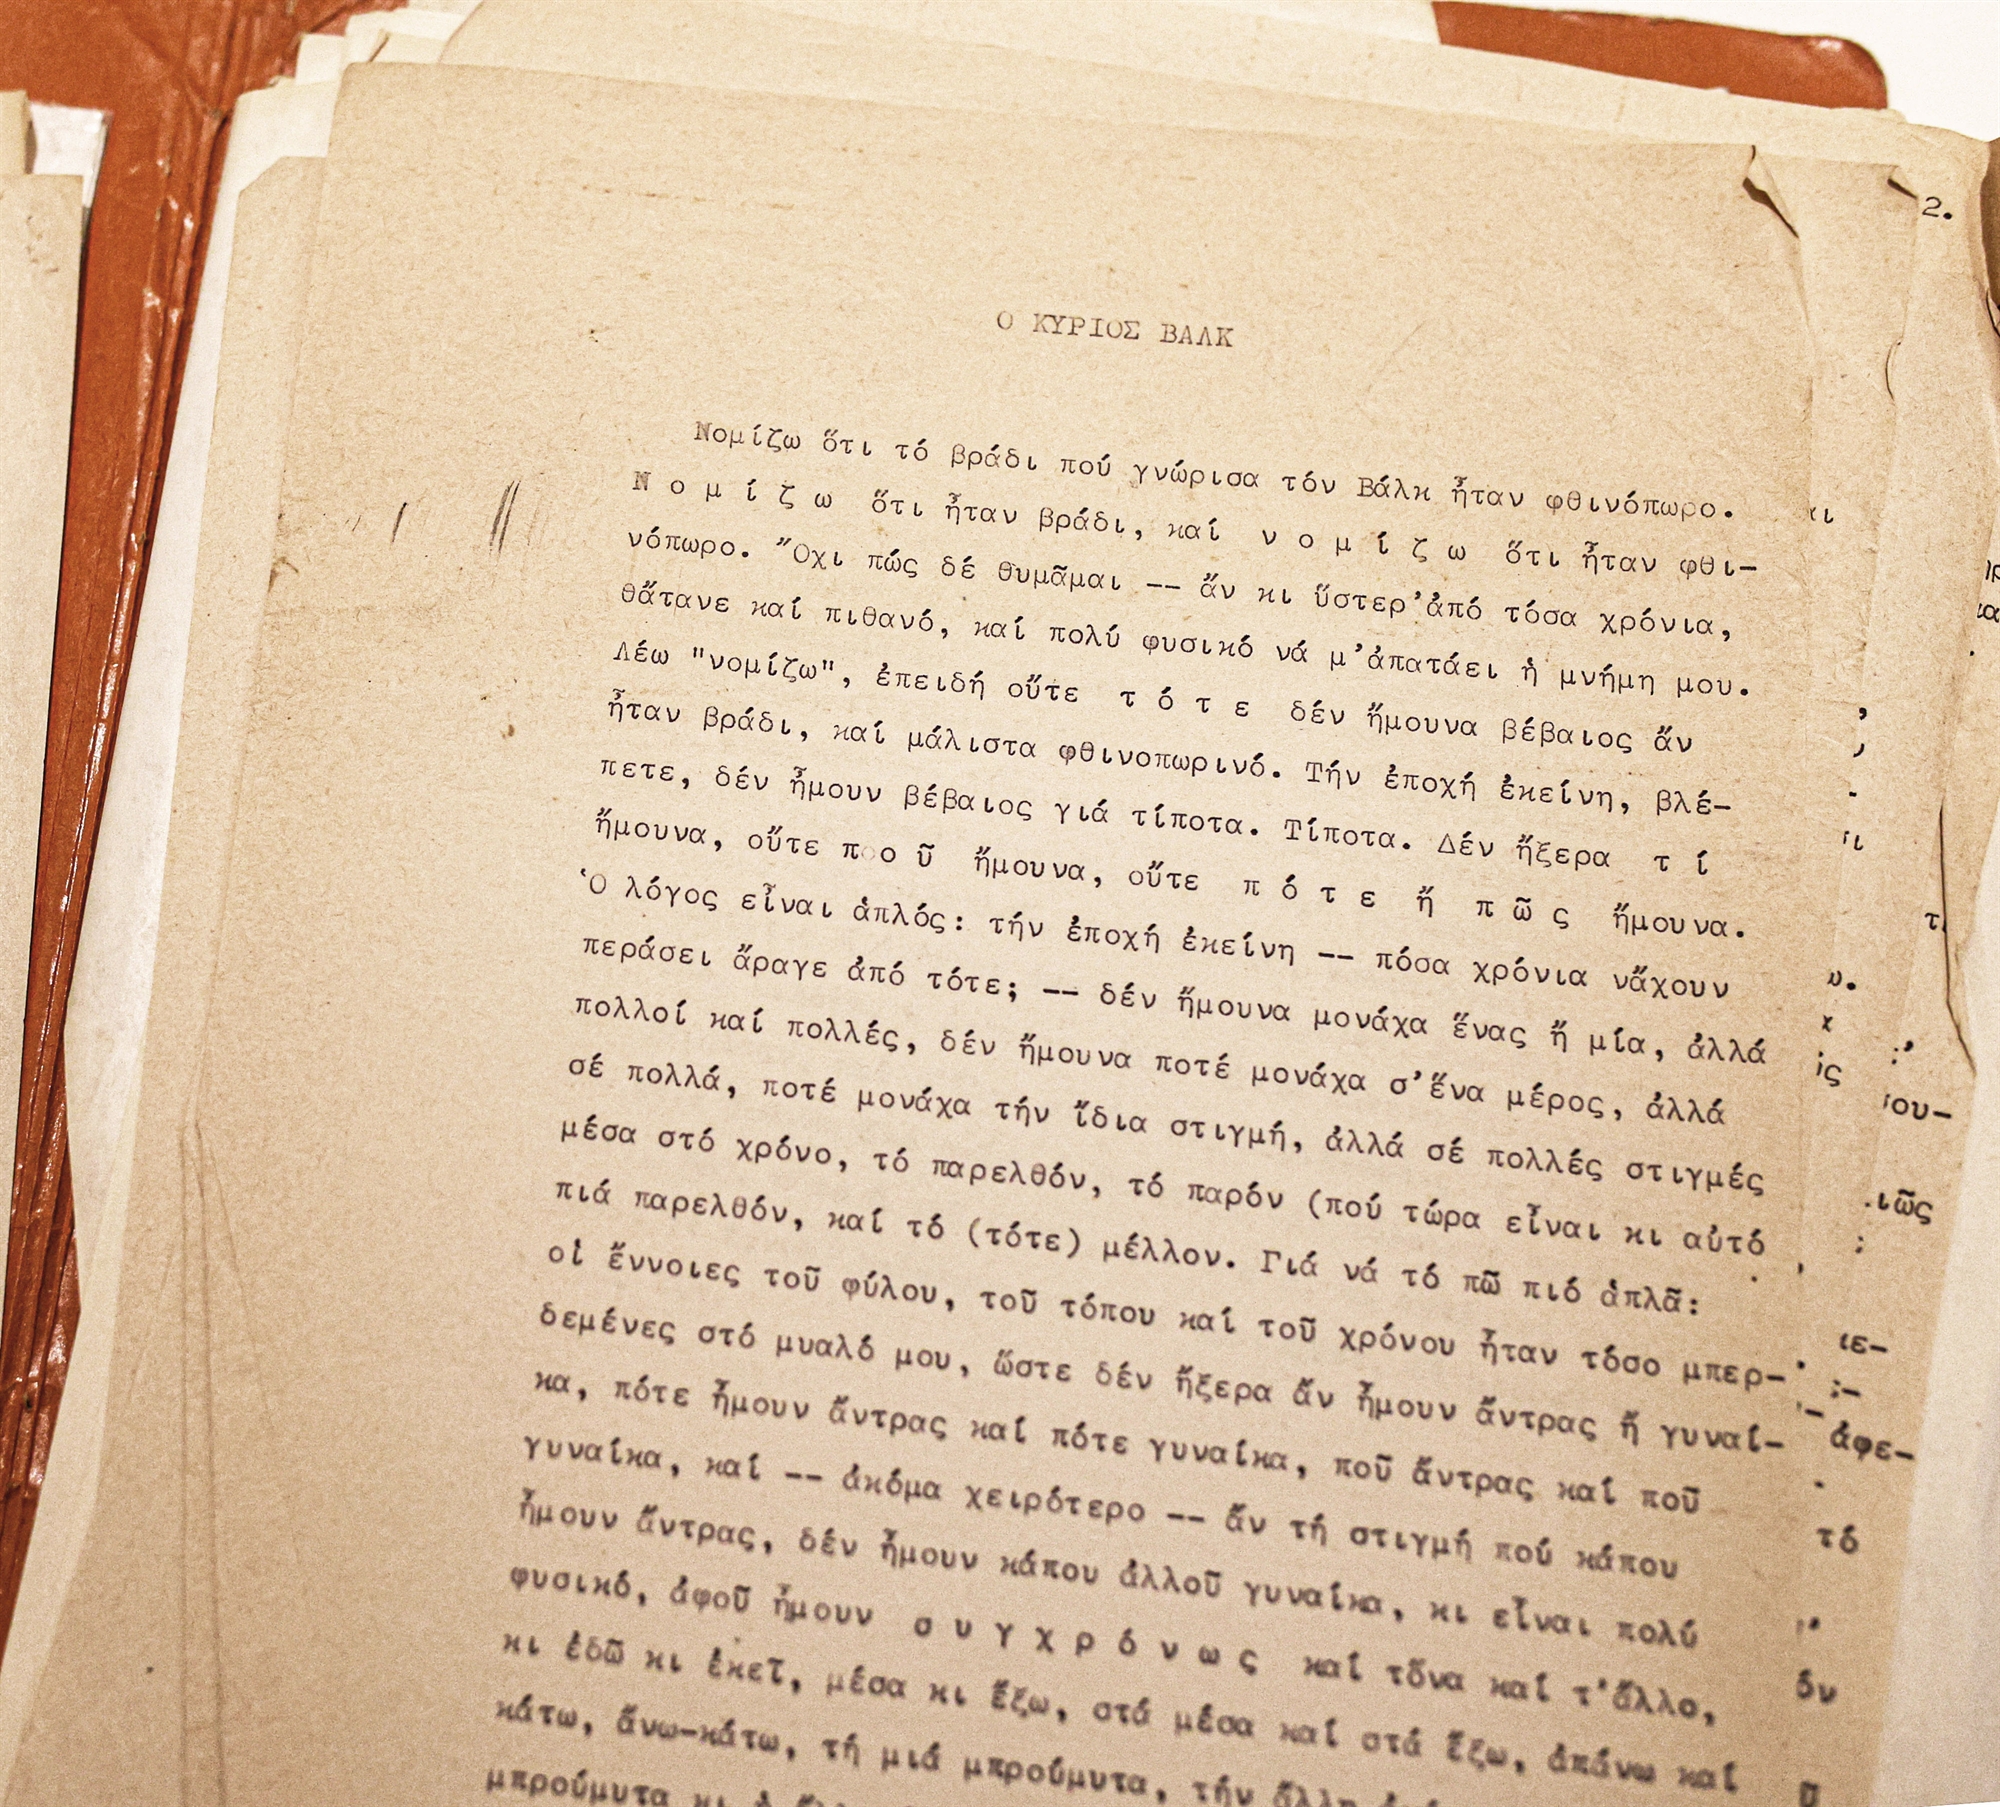 2.
Ο ΚΥΡΙΟΣ ΒΑΛΚ
Νομίζω ὅτι τό βράδι πού γνώρισα τόν Βάλκ ἦταν φθινόπωρο.
Ν ο μ ί ζ ω ὅτι ἦταν βράδι, καί ν ο μ ί ζ ω ὅτι ἦταν φθι-
νόπωρο. Ὄχι πώς δέ θυμᾶμαι -- ἄν κι ὕστερ'ἀπό τόσα χρόνια,
θἄτανε καί πιθανό, καί πολύ φυσικό νά μ'ἀπατάει ἡ μνήμη μου.
Λέω "νομίζω", ἐπειδή οὔτε τ ό τ ε δέν ἤμουνα βέβαιος ἄν
ἦταν βράδι, καί μάλιστα φθινοπωρινό. Τήν ἐποχή ἐκείνη, βλέ-
πετε, δέν ἦμουν βέβαιος γιά τίποτα. Τίποτα. Δέν ἤξερα τ ί
ἤμουνα, οὔτε π ο ῦ ἤμουνα, οὔτε π ό τ ε ἤ π ῶ ς ἤμουνα.
Ὁ λόγος εἶναι ἁπλός: τήν ἐποχή ἐκείνη -- πόσα χρόνια νἄχουν
περάσει ἄραγε ἀπό τότε; -- δέν ἤμουνα μονάχα ἕνας ἤ μία, ἀλλά
πολλοί καί πολλές, δέν ἤμουνα ποτέ μονάχα σ'ἕνα μέρος, ἀλλά
σέ πολλά, ποτέ μονάχα τήν ἴδια στιγμή, ἀλλά σέ πολλές στιγμές
μέσα στό χρόνο, τό παρελθόν, τό παρόν (πού τώρα εἶναι κι αὐτό
πιά παρελθόν, καί τό (τότε) μέλλον. Γιά νά τό πῶ πιό ἁπλᾶ:
οἱ ἔννοιες τοῦ φύλου, τοῦ τόπου καί τοῦ χρόνου ἦταν τόσο μπερ-
δεμένες στό μυαλό μου, ὥστε δέν ἤξερα ἄν ἦμουν ἄντρας ἤ γυναί-
κα, πότε ἦμουν ἄντρας καί πότε γυναίκα, ποῦ ἄντρας καί ποῦ
γυναίκα, καί -- ἀκόμα χειρότερο -- ἄν τή στιγμή πού κάπου
ἦμουν ἄντρας, δέν ἦμουν κάπου ἀλλοῦ γυναίκα, κι εἶναι πολύ
φυσικό, ἀφοῦ ἦμουν σ υ γ χ ρ ό ν ω ς καί τὄνα καί τ'ἄλλο,
κι ἐδῶ κι ἐκεῖ, μέσα κι ἔξω, στά μέσα καί στά ἔξω, ἀπάνω καί
κάτω, ἄνω-κάτω, τή μιά μπρούμυτα, τήν ἄλλη
μπρούμυτα κι ἡ